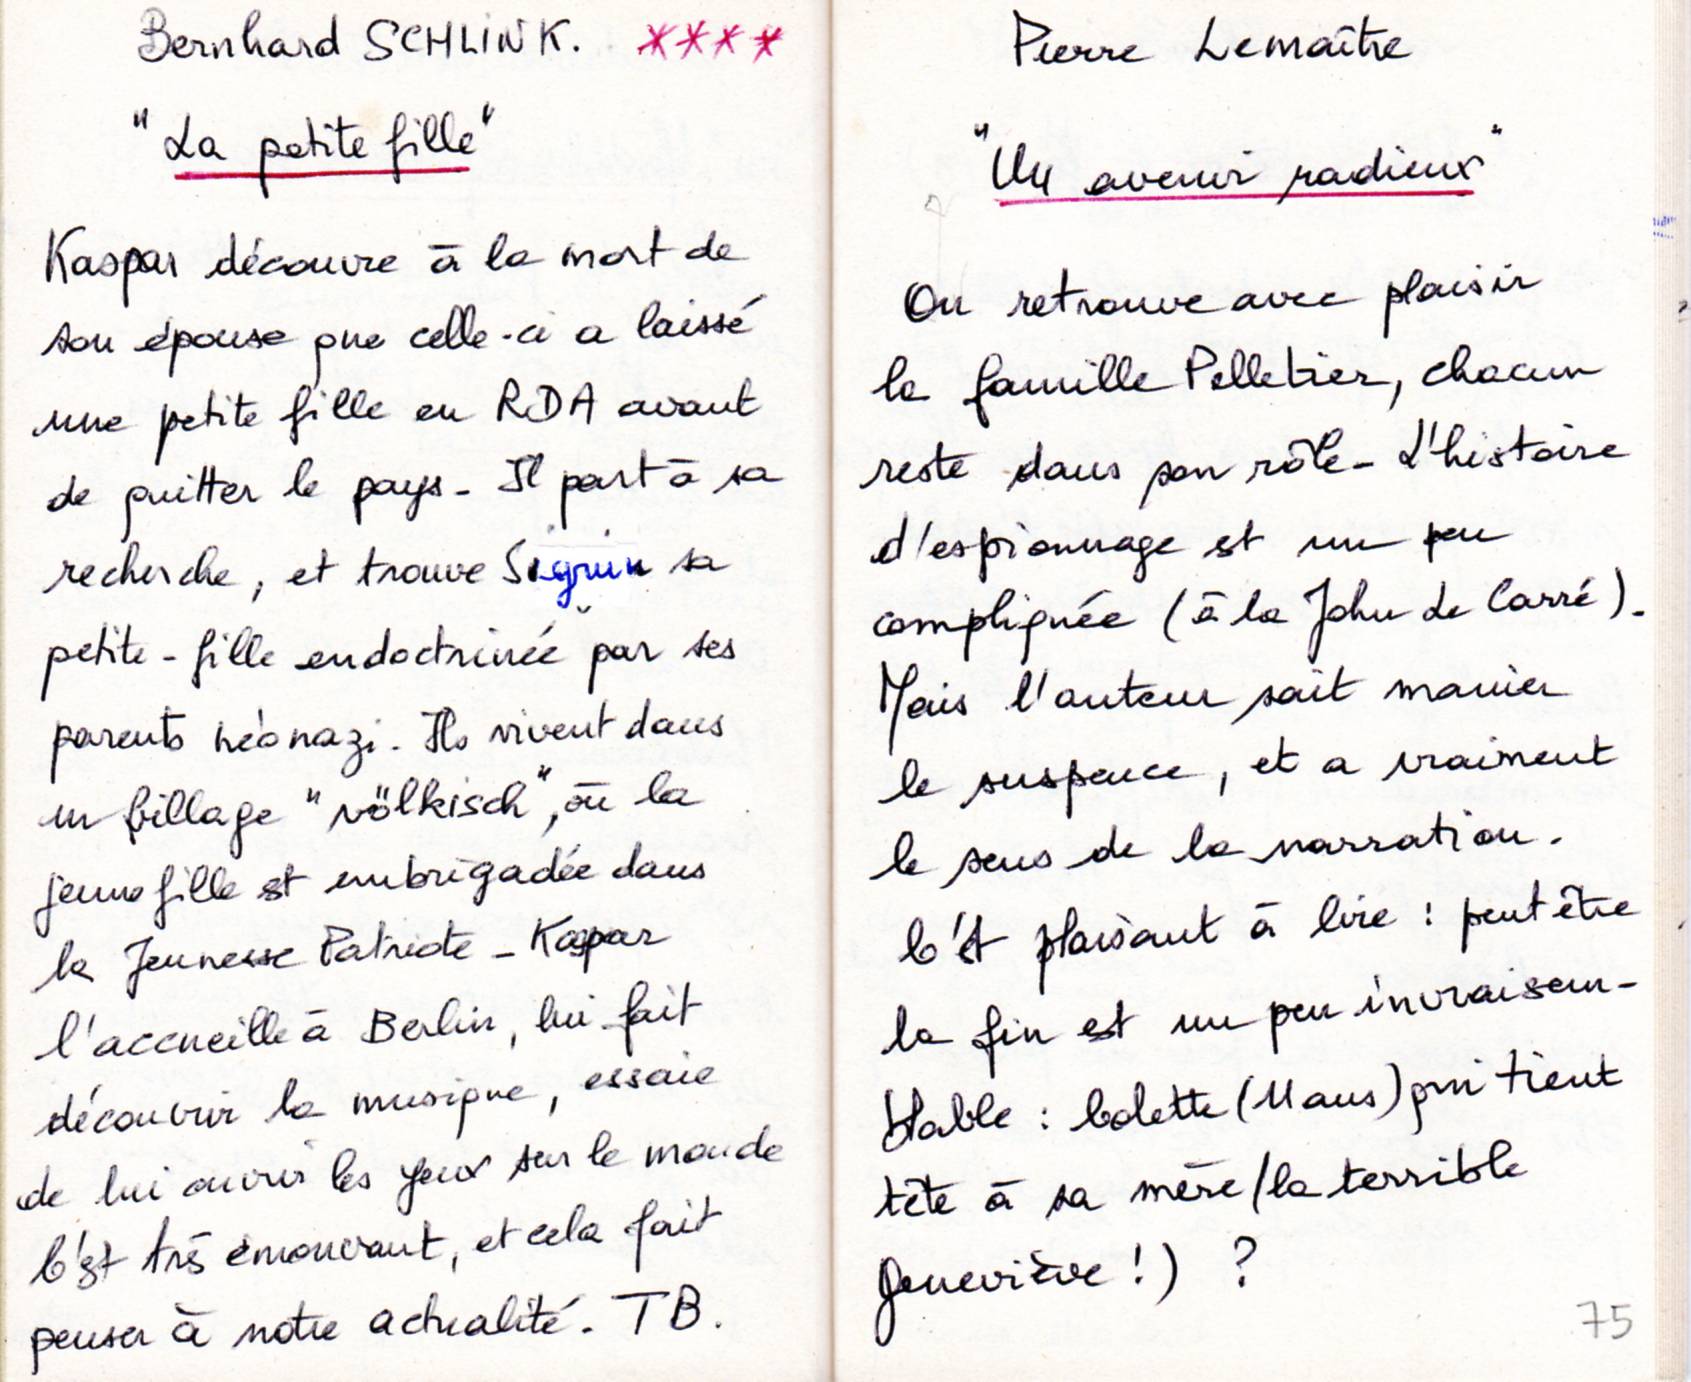 Bernhard SCHLINK. ****
"La petite fille"
Kaspar découvre à la mort de
son épouse que celle-ci a laissé
une petite fille en RDA avant
de quitter le pays - Il part à sa
recherche, et trouve Sigrun sa
petite-fille endoctrinée par ses
parents néonazi. Ils vivent dans
un village "völkisch", où la
jeune fille est embrigadée dans
la Jeunesse Patriote - Kaspar
l'accueille à Berlin, lui fait
découvrir la musique, essaie
de lui ouvrir les yeux sur le monde
C'est très émouvant, et cela fait
penser à notre actualité. TB.
Pierre Lemaître
"Un avenir radieux"
On retrouve avec plaisir
la famille Pelletier, chacun
reste dans son rôle - L'histoire
d'espionnage est un peu
compliquée (à la John Le Carré).
Mais l'auteur sait manier
le suspence, et a vraiment
le sens de la narration.
C'est plaisant à lire : peut être
la fin est un peu invraisem-
blable : Colette (11 ans) qui tient
tête à sa mère (la terrible
Geneviève !) ?
75